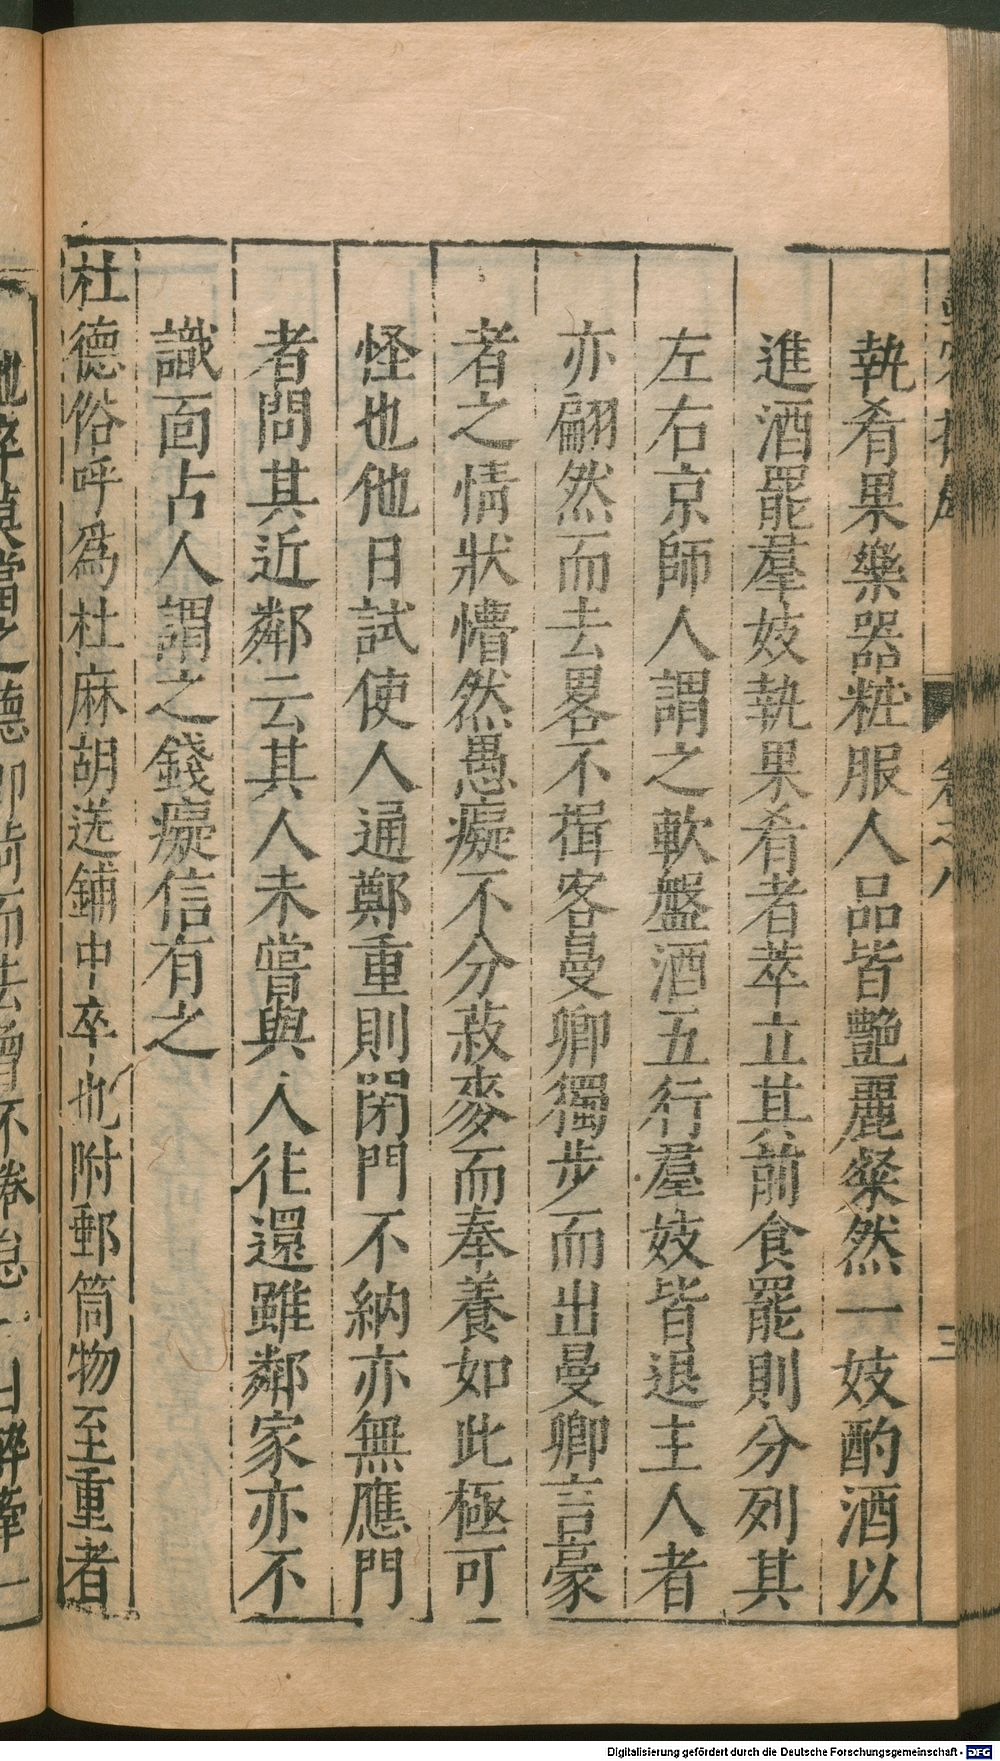 卷之八 三
執肴果樂器粧服人品皆艷麗粲然一妓酌酒以
進酒罷羣妓執果肴者萃立其前食罷則分列其
左右京師人謂之軟盤酒五行羣妓皆退主人者
亦翩然而去畧不揖客曼卿獨步而出曼卿言豪
者之情狀懵然愚癡不分菽麥而奉養如此極可
怪也他日試使人通鄭重則閉門不納亦無應門
者問其近鄰云其人未嘗與人往還雖鄰家亦不
識面古人謂之錢癡信有之
杜德俗呼爲杜麻胡送鋪中卒也附郵筒物至重者
Digitalisierung gefördert durch die Deutsche Forschungsgemeinschaft - DFG